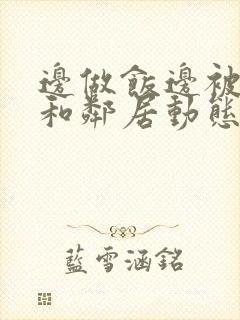 邊做飯邊被
和鄰居動態
藍雪涵銘